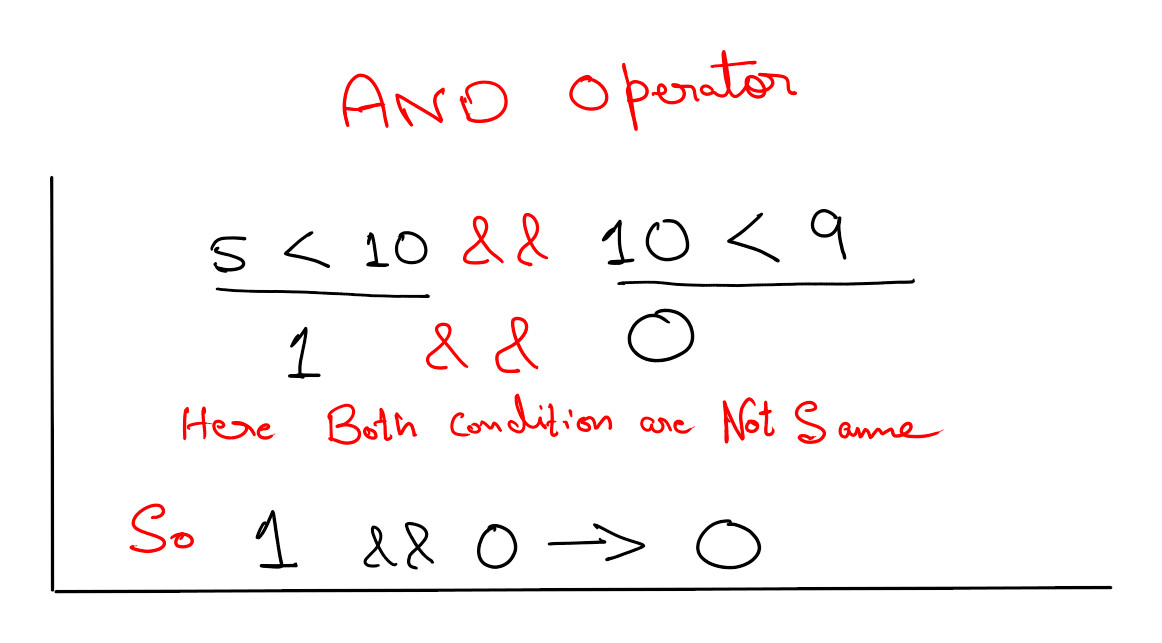 AND Operator
5 < 10 && 10 < 9
1 && 0
Here Both condition are Not Same
So 1 && 0 → 0